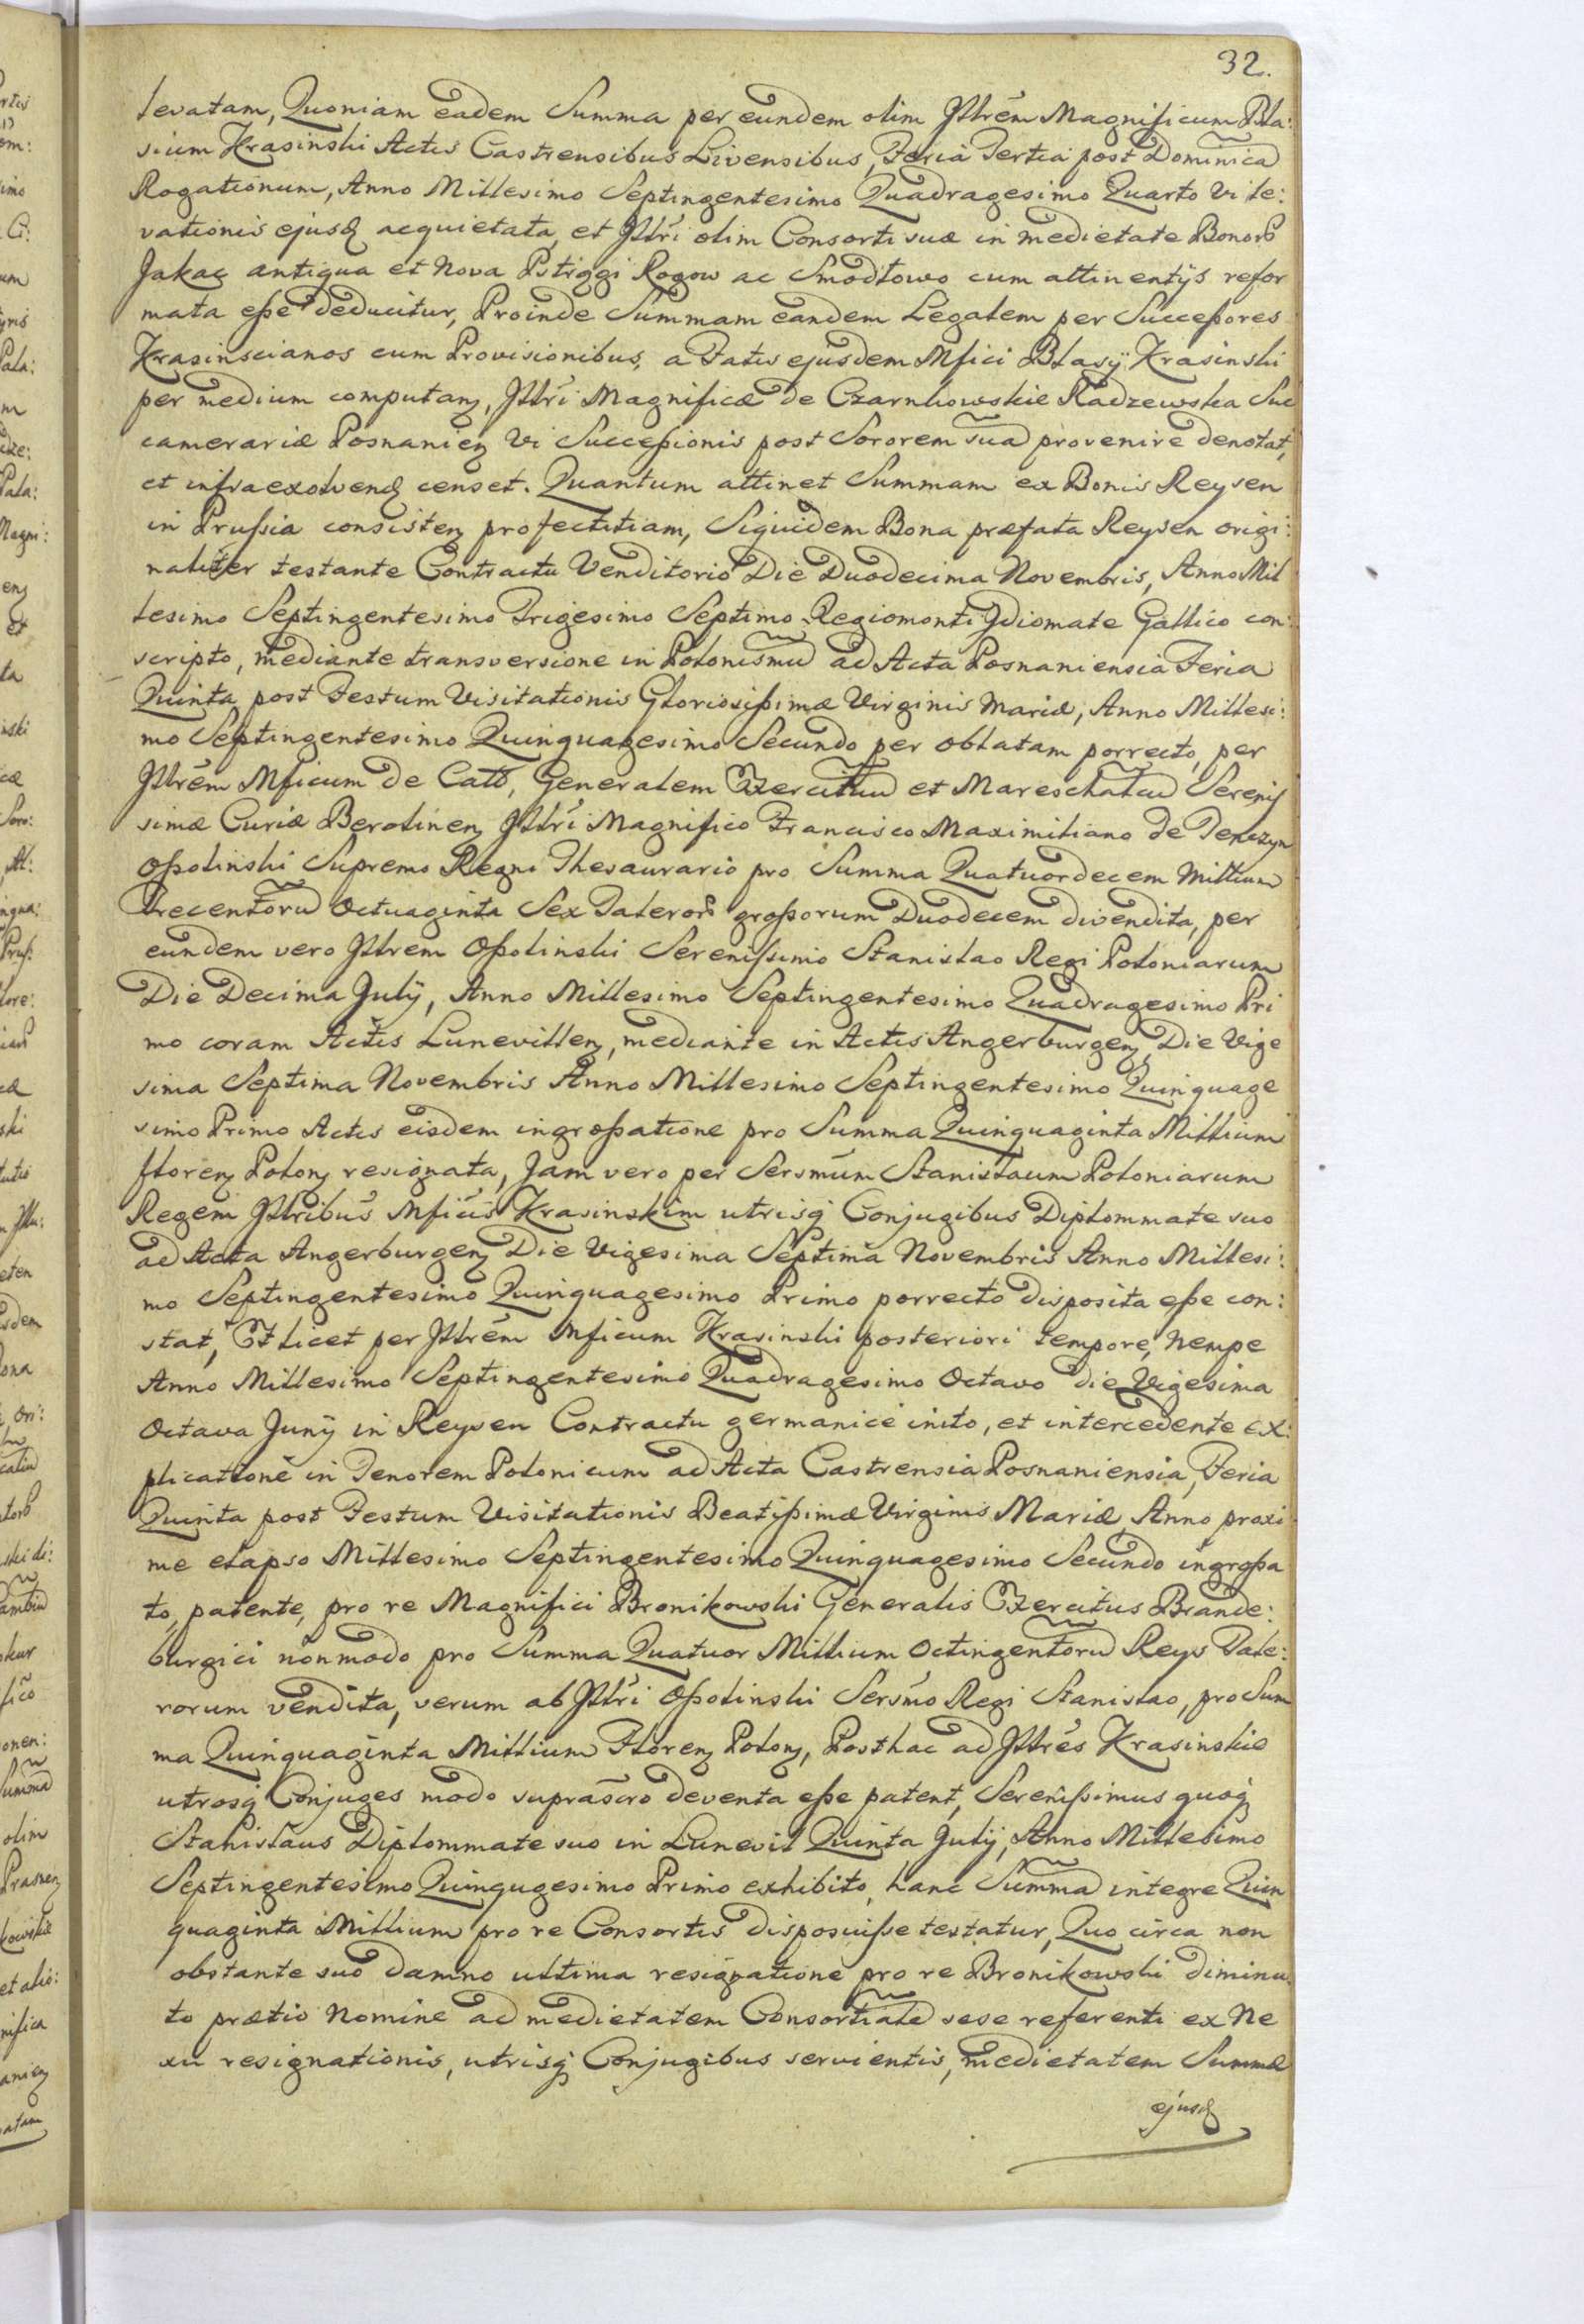 32.
levatam, Quoniam eadem Summa per eundem olim Jllrẽm Magnificum Bla:
sium Krasinski Actis Castrensibus Livensibus, Feria Tertia post Dominicã
Rogationum, Anno Millesimo Septingentesimo Quadragesimo Quarto vi le:
vationis ejusd acquietata, et Jllri olim Consorti suæ in medietate Bonor
Jakac antiqua et Nova Pstriggi Rogow ac Smodtowo cum attinentijs refor
mata eße deducitur, Proinde Summam eandem Legalem per Succeßores
Krasinscianos cum Provisionibus, a Fatis ejusdem Mfici Blasÿ Krasinski
per medium computan, Jllri Magnificæ de Czarnkowskie Radzewska Suc
camerariæ Posnanien vi Succeßionis post Sororem suã provenire denotat,
et infra exolvend censet. Quantum attinet Summam ex Bonis Reysen
in Prußia consisten profectitiam, Siquidem Bona præfata Reysen origi:
naliter testante Contractu Venditorio Die Duodecima Novembris, Anno Mil
lesimo Septingentesimo Trigesimo Septimo Regiomonti Ydiomate Gallico con:
scripto, mediante transversione in Polonismũ ad Acta Posnaniensia Feria
Quinta post Festum Visitationis Gloriosißimæ Virginis Mariæ, Anno Millesi:
mo Septingentesimo Quinquagesimo Secundo per oblatam porrecto, per
Jllrẽm Mficum de Catt, Generalem Exercituũ et Mareschalcũ Sereniß
simæ Curiæ Berolinen Jllri Magnifico Francisco Maximiliano de Tenczyn
Oßolinski Supremo Regni Thesaurario pro Summa Quatuordecem Millium
Trecentorũ Octuaginta Sex Taleror großorum Duodecem divendita, per
eundem vero Jllrem Oßolinski Serenißimo Stanislao Regi Poloniarum
Die Decima Julÿ, Anno Millesimo Septingentesimo Quadragesimo Pri
mo coram Actis Lunevillen, mediante in Actis Angerburgen Die Vige
sima Septima Novembris Anno Millesimo Septingentesimo Quinquage
simo Primo Actis eisdem ingroßatione pro Summa Quinquaginta Millium
floren Polon resignata, Jam vero per Sersmum Stanislaum Poloniarum
Regem Jllribus Mficis Krasinskim utrisq Conjugibus Diplommate suo
ad Acta Angerburgen Die Vigesima Septima Novembris Anno Millesi:
mo Septingentesimo Quinquagesimo Primo porrecto disposita eße con:
stat, Et licet per Jllrẽm Mficum Krasinski posteriori tempore, nempe
Anno Millesimo Septingentesimo Quadragesimo Octavo die Vigesima
Octava Junÿ in Reysen Contractu germanice inito, et intercedente ex:
plicatione in Tenorem Polonicum ad Acta Castrensia Posnaniensia, Feria
Quinta post Festum Visitationis Beatißimæ Virginis Mariæ, Anno proxi
me elapso Millesimo Septingentesimo Quinquagesimo Secundo ingroßa
to, patente, pro re Magnifici Bronikowski Generalis Exercitus Brande:
burgici non modo pro Summa Quatuor Millium Octingentorũ Reys Tale:
rorum vendita, verum ab Jllri Oßolinski Sersmo Regi Stanislao, pro Sum
ma Quinquaginta Millium Floren Polon, Posthac ad Jllres Krasinskie
utrosq Conjuges modo suprascro deventa eße patent, Serenißimus quoq
Stanislaus Diplommate suo in Lunevil Quinta Julÿ, Anno Millesimo
Septingentesimo Quinqugesimo Primo exhibito, hanc Summã integre Quin
quaginta Millium pro re Consortis disposuiße testatur, Quo circa non
obstante suo damno ultima resignatione pro re Bronikowski diminu:
to prætio Nomine ad medietatem Consortialẽ sese referenti ex Ne
xu resignationis, utrisq Conjugibus servientis, medietatem Summæ
ejusd